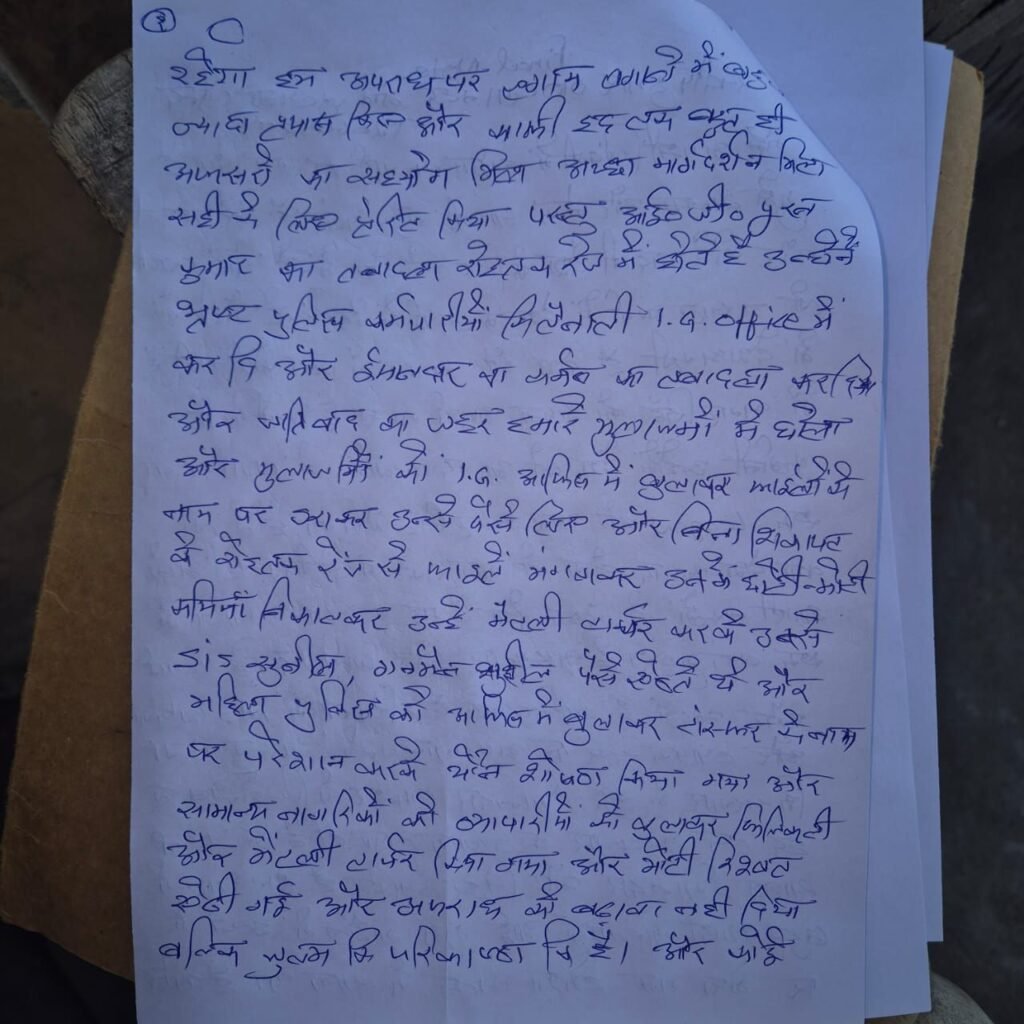 २
रहेगा इस अपराध पर लगाम लगाने में बहु
ज्यादा प्रयास किए और काफी हद तक बहुत ही
अफसरों का सहयोग मिला अच्छा मार्गदर्शन मिला
सही के लिए प्रेरित किया परन्तु आई० जी० पूरन
कुमार का तबादला रोहतक रेंज में होते है उन्होंने
भ्रष्ट पुलिस कर्मचारीयों कि तैनाती I.G. office में
कर दि और ईमानदार का तबादला कर दिया
और जातिवाद का जहर हमारे मुलाजमों में घोला
और मुलाजमों को I.G. आफिस में बुलाकर फाईलों के
नाम पर डराकर उनसे पैसे लिए और बिना शिकायत
के रोहतक रेंज से फाईलें मंगवाकर उनमें छोटी-मोटी
कमियां निकालकर उन्हें मैंटली टार्चर करके उनसे
SIS सुनील, गनमैन सुशील पैसे ऐंठते थे और
महिला पुलिस को आफिस में बुलाकर ट्रांसफर के नाम
पर परेशान करके यौन शोषण किया गया और
सामान्य नागरिकों को व्यापारीयों को बुलाकर फिजिकली
और मैंटली टार्चर किया गया और मोटी रिश्वत
ऐंठी गई और अपराध को बढ़ावा नही दिया
बल्कि जुल्म कि पराकाष्ठा कि है। और कोई